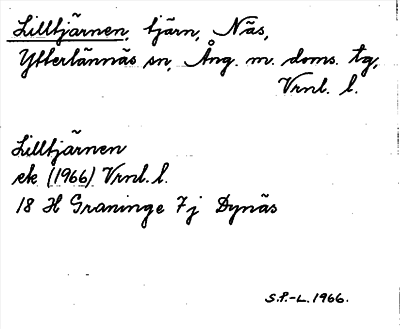 Lilltjärnen, tjärn, Näs,
Ytterlännäs sn, Ång. m. doms. tg,
Vrnl. l.
Lilltjärnen
ek (1966) Vrnl. l.
18 H Graninge 7 j Dynäs
S.P.-L. 1966.